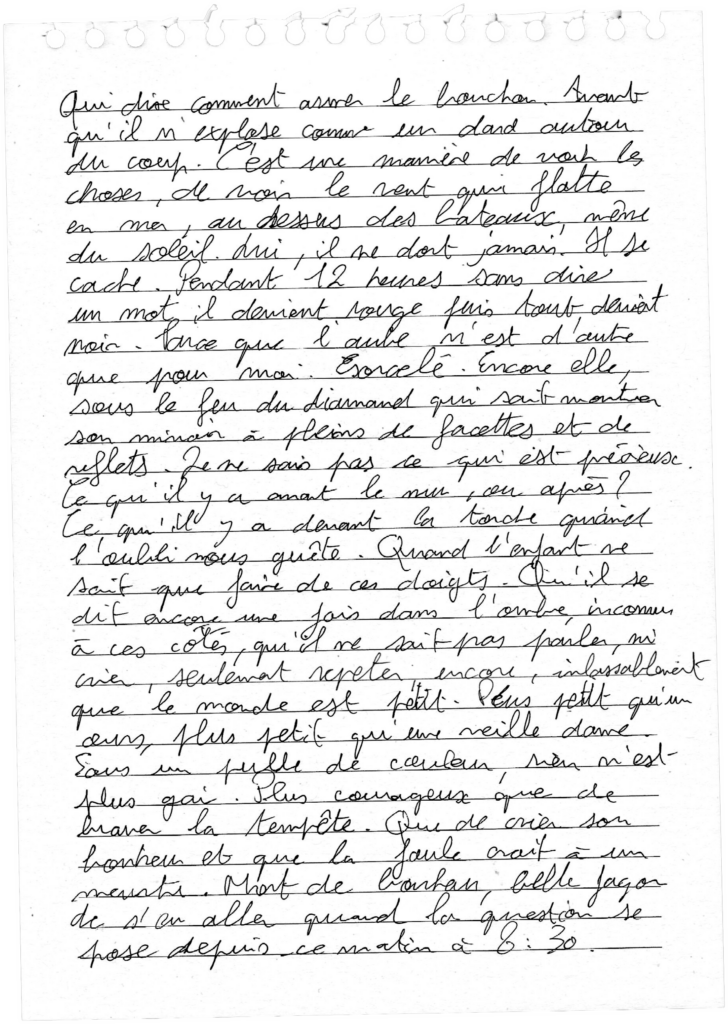 Qui dire comment asmer le bouchon. Avant
qu'il n'explose comme un dard autour
du coeup. C'est une manière de voir les
choses, de voir le vent qui flatte
en mer, au dessus des bateaux, même
du soleil. Lui, il ne dort jamais. Il se
cache. Pendant 12 heures sans dire
un mot, il devient rouge puis tout devient
noir. Parce que l'aube n'est d'autre
que pour moi. Esorcelé. Encore elle,
sous le feu du diamand qui sait montrer
son minoir à pleins de facettes et de
reflets. Je ne sais pas ce qui est précieuse.
Ce qu'il y a avant le mur, ou après?
Ce qu'il y a devant la torche quand
l'oubli nous guête. Quand l'enfant ne
sait que faire de ces doigts. Qu'il se
dit encore une fois dans l'ombre, inconnus
à ces côtés, qu'il ne sait pas parler, ni
crier, seulement repeter, encore, inlassablement
que le monde est petit. Plus petit qu'un
ours, plus petit qu'une veille dame.
Sous un pulle de couleur, rien n'est
plus gai. Plus courageux que de
braver la tempête. Que de crier son
bonheur et que la foule croit à un
meurtre. Mort de bonheur, belle façon
de s'en aller quand la question se
pose depuis ce matin à 8:30.